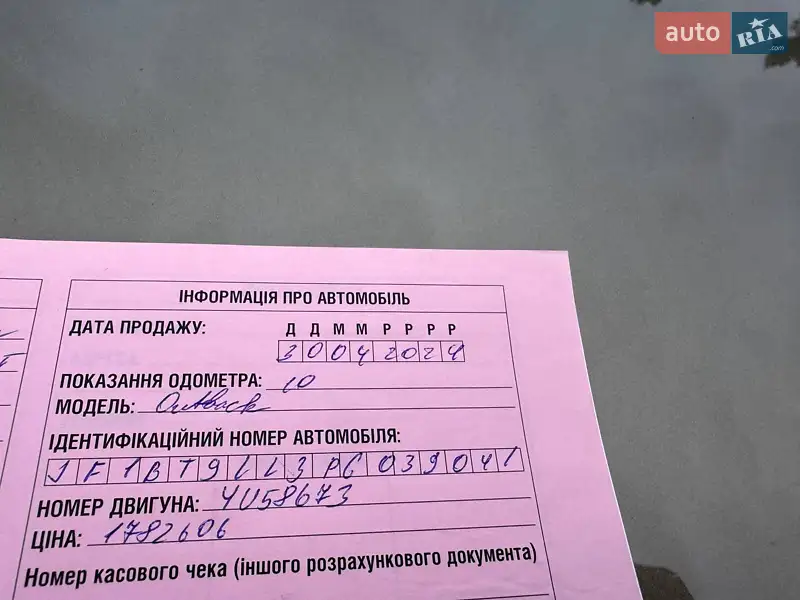 auto RIA .com
ІНФОРМАЦІЯ ПРО АВТОМОБІЛЬ
ДАТА ПРОДАЖУ: Д Д М М Р Р Р Р
30042024
ПОКАЗАННЯ ОДОМЕТРА: 10
МОДЕЛЬ: Outback
ІДЕНТИФІКАЦІЙНИЙ НОМЕР АВТОМОБІЛЯ:
JF1BT9LL3PG039041
НОМЕР ДВИГУНА: YU58673
ЦІНА: 1782606
Номер касового чека (іншого розрахункового документа)